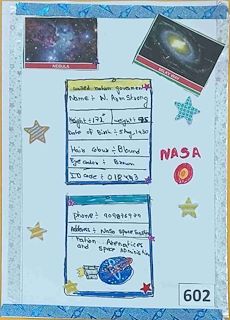 NEBULA
MILKY WAY
united nation government
Name ÷ N. Arm Strong
Height ÷ 172" weight ÷ 55
Date of Birth ÷ 5 Aug, 1930
Hair colour ÷ Blound
Eye color ÷ Brown
ID code ÷ 018493
NASA
phone ÷
Address ÷ Naso space
nation Aeronatices
and space Administration
602